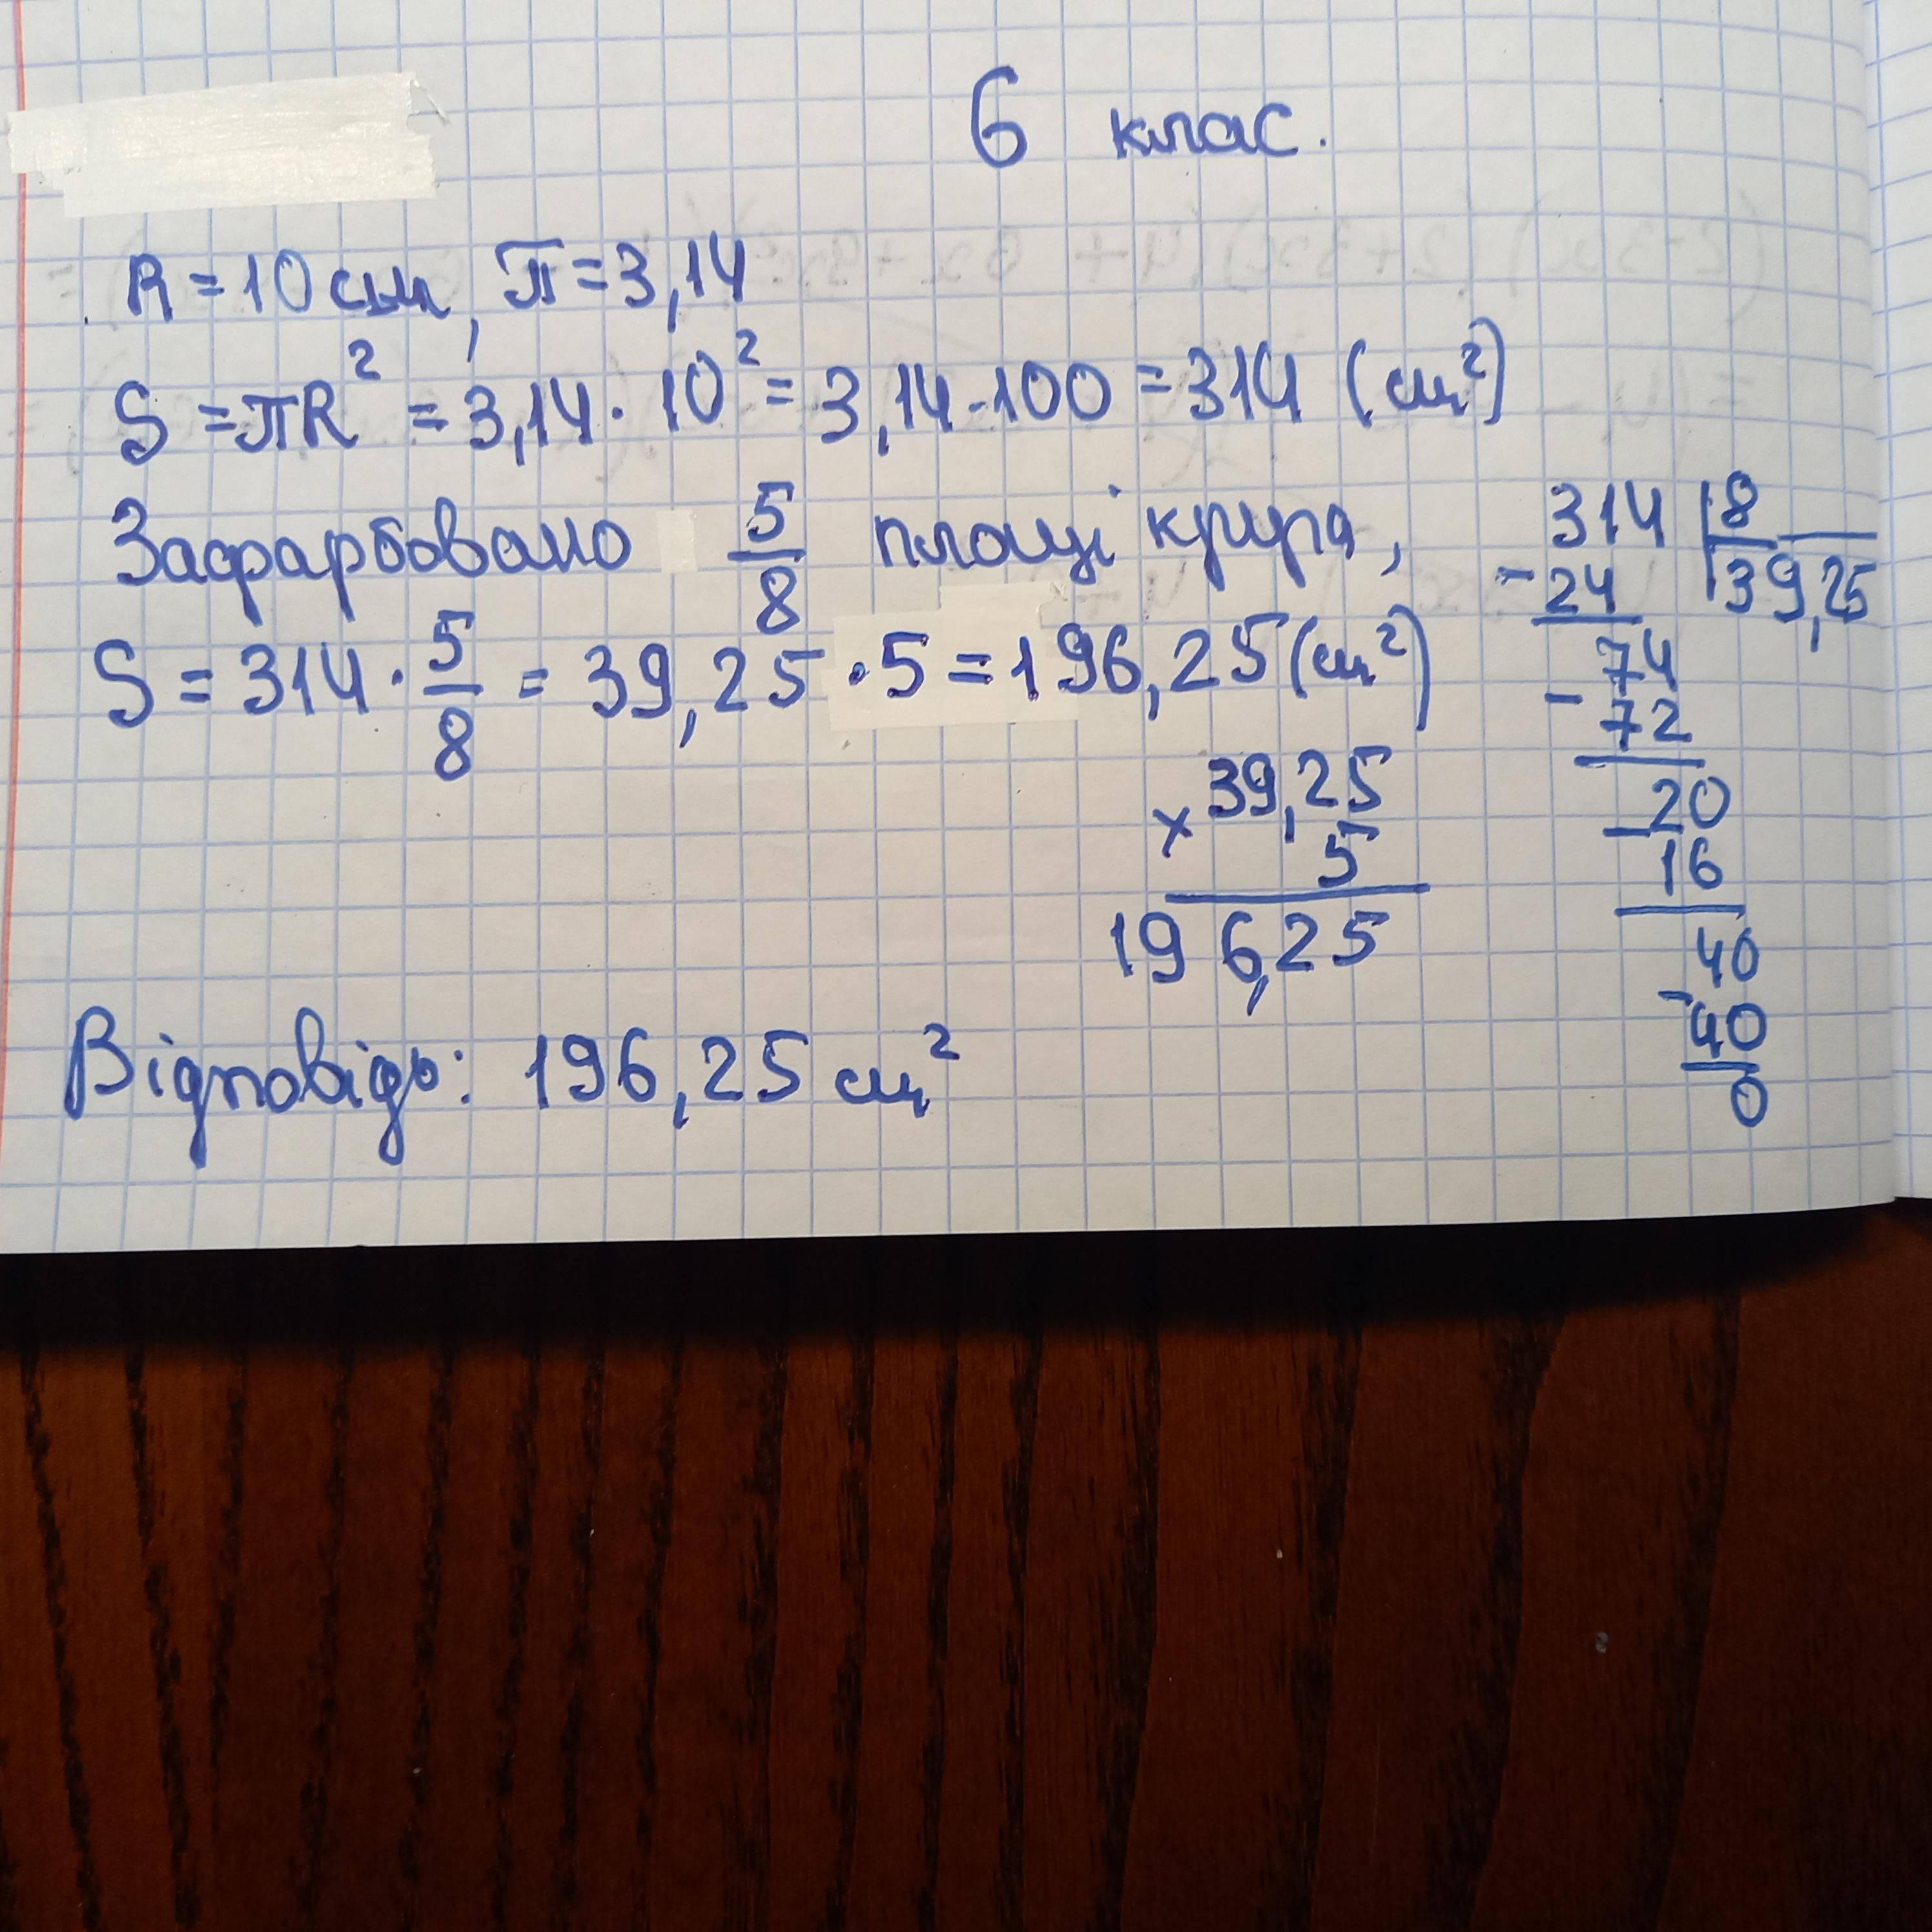 6 клас.
R = 10 см, π = 3,14
S = πR² = 3,14 · 10² = 3,14 · 100 = 314 (см²)
Зафарбовано 5/8 площі круга,
S = 314 · 5/8 = 39,25 · 5 = 196,25 (см²)
314 | 8
- 24 | 39,25
74
- 72
20
- 16
40
- 40
0
× 39,25
5
196,25
Відповідь: 196,25 см²